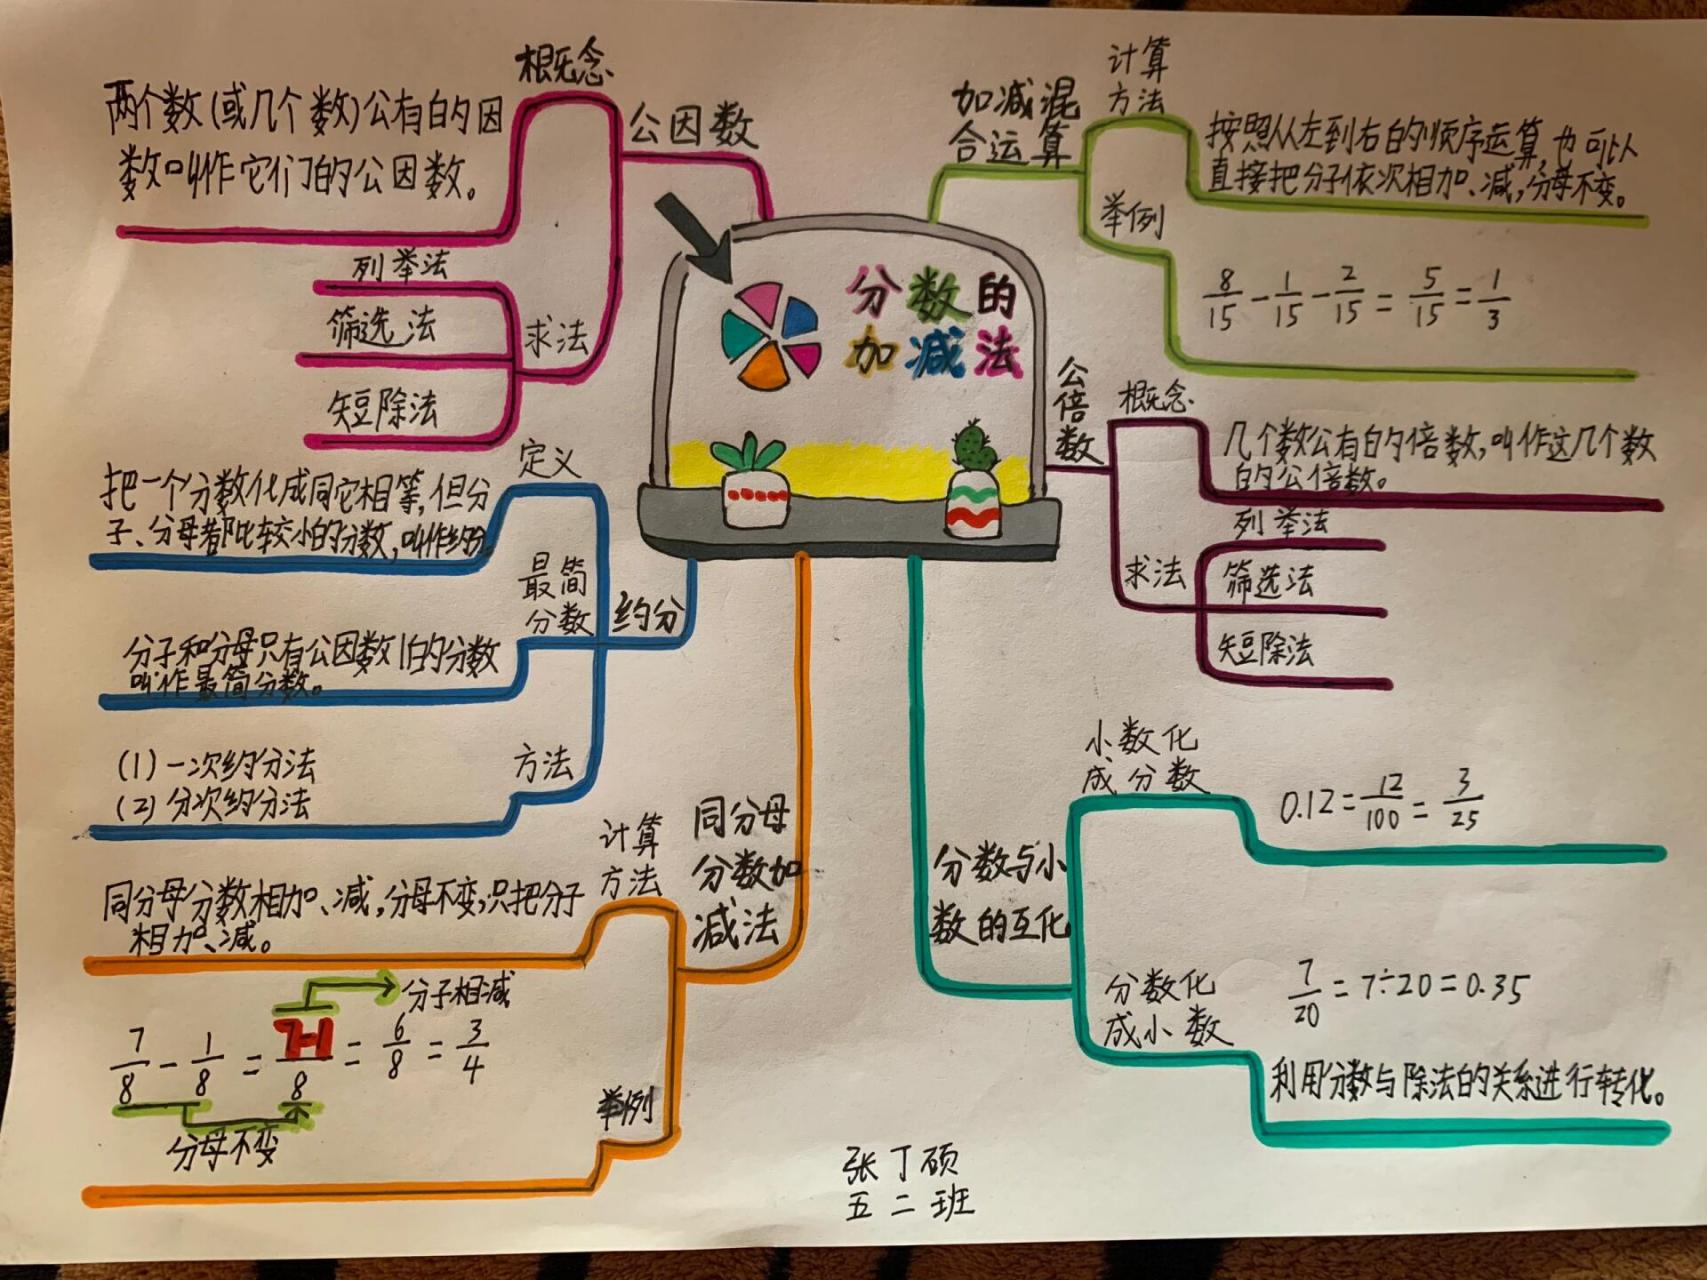 分数的
加减法
公因数
概念
两个数(或几个数)公有的因
数叫作它们的公因数。
求法
列举法
筛选法
短除法
约分
定义
把一个分数化成同它相等,但分
子、分母都比较小的分数,叫作约分
最简
分数
分子和分母只有公因数1的分数
叫作最简分数。
方法
(1)一次约分法
(2)分次约分法
同分母
分数加
减法
计算
方法
同分母分数相加、减,分母不变,只把分子
相加、减。
举例
分子相减
7/8 - 1/8 = 7-1/8 = 6/8 = 3/4
分母不变
加减混
合运算
计算
方法
按照从左到右的顺序运算,也可以
直接把分子依次相加、减,分母不变。
举例
8/15 - 1/15 - 2/15 = 5/15 = 1/3
公倍数
概念
几个数公有的倍数,叫作这几个数
的公倍数。
求法
列举法
筛选法
短除法
分数与小
数的互化
小数化
成分数
0.12 = 12/100 = 3/25
分数化
成小数
7/20 = 7÷20 = 0.35
利用分数与除法的关系进行转化。
张丁硕
五二班